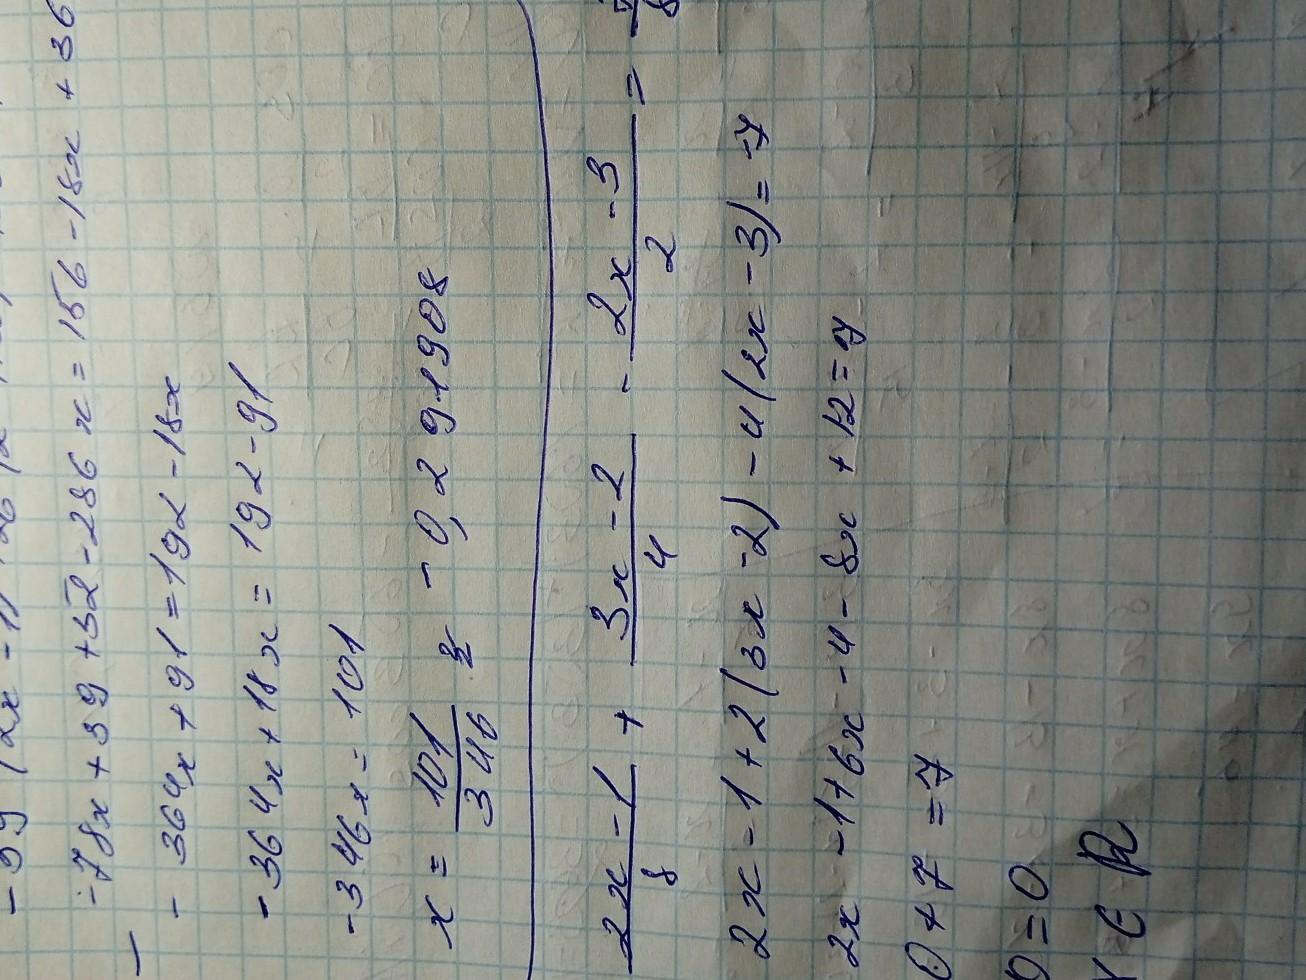 -78x + 39 + 52 - 286x = 156 - 18x + 36
- 364x + 91 = 192 - 18x
-364x + 18x = 192 - 91
-346x = 101
x = 101/346 - 0,291908
(2x - 1)/8 + (3x - 2)/4 - (2x - 3)/2 = 7/8
2x - 1 + 2(3x - 2) - 4(2x - 3) = 7
2x - 1 + 6x - 4 - 8x + 12 = 7
0 + 7 = 7
0 = 0
x ∈ R